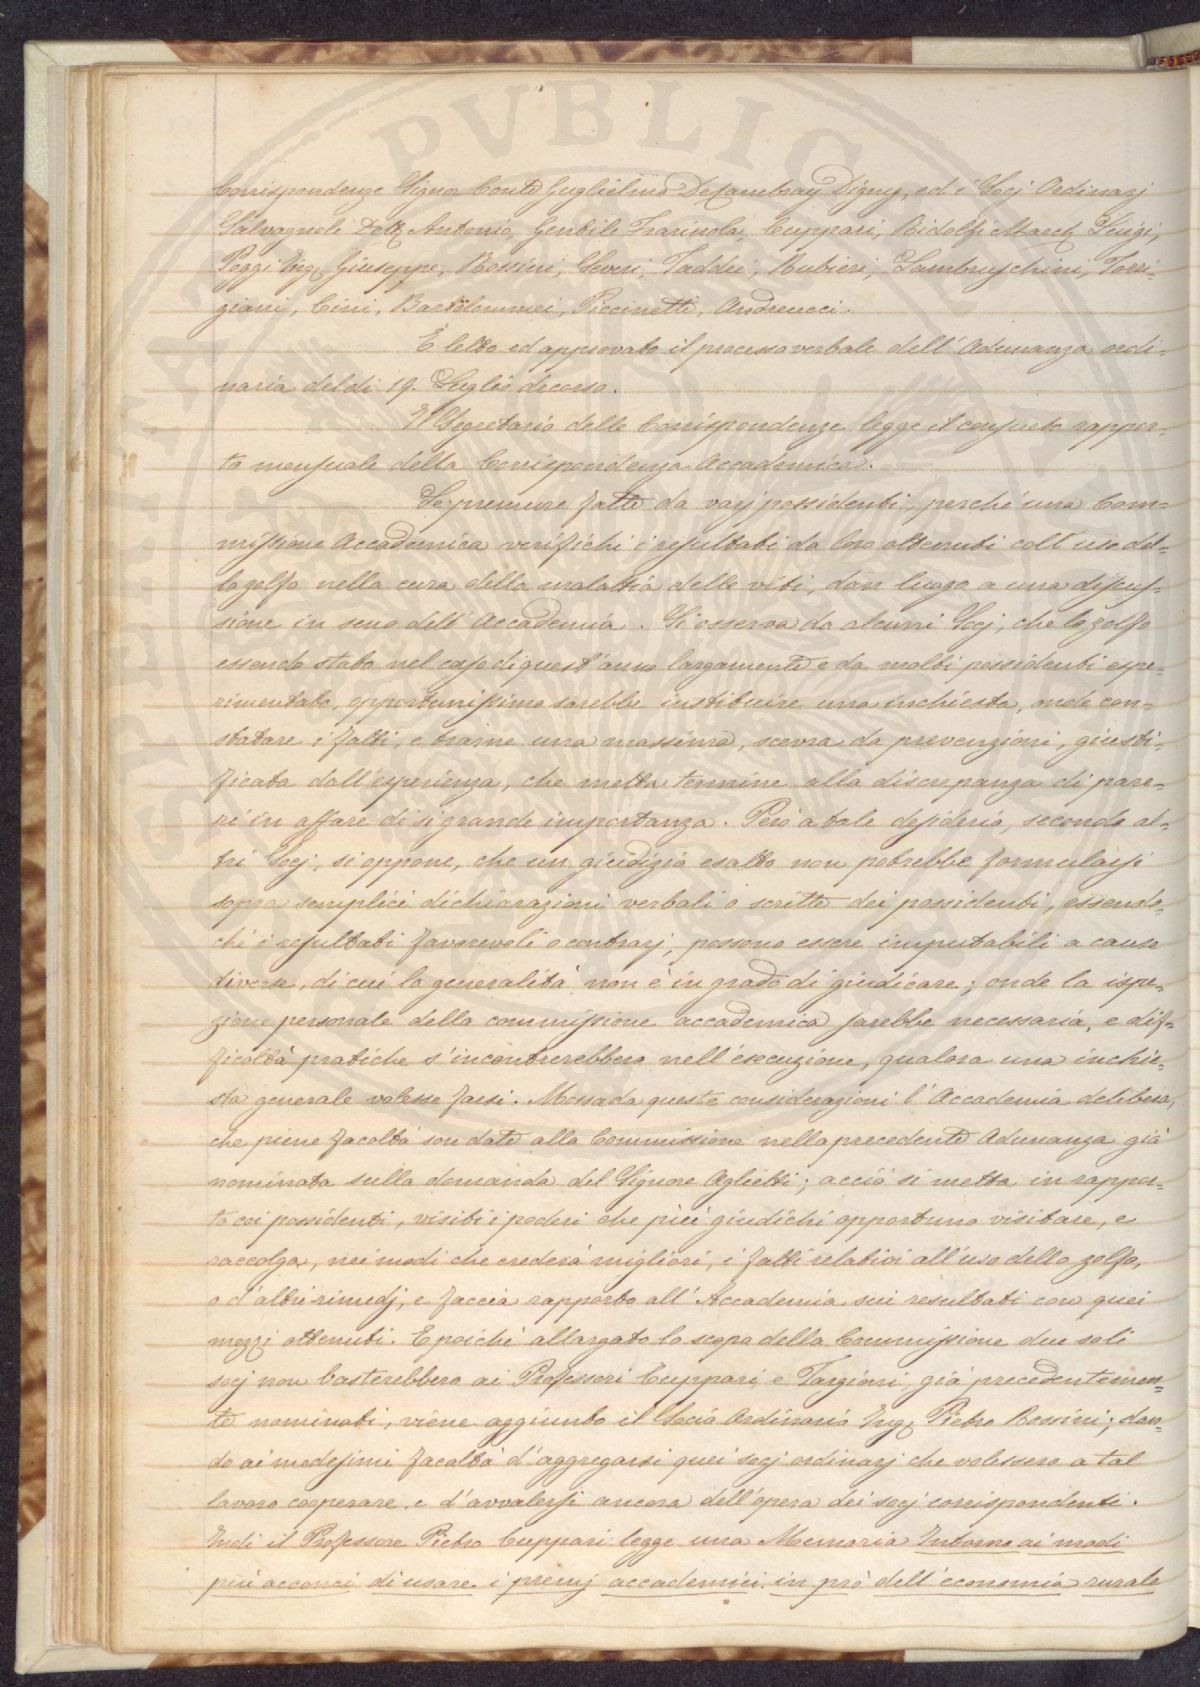 PVBLICE
Corrispondenze Signor Conte Guglielmo De Cambray Digny, ed i Socj Ordinarj
Salvagnoli Dott. Antonio, Gentile Farinola, Cuppari, Ridolfi March. Luigi,
Poggi Ing. Giuseppe, Rossini, Severi, Taddei, Rubieri, Lambruschini, Torri-
giani, Cini, Bartolommei, Piccinetti, Andreucci.
È letto ed approvato il processo verbale dell'Adunanza ordi-
naria del dì 19. Luglio decorso.
Il Segretario delle Corrispondenze legge il consueto rappor-
to mensuale della Corrispondenza Accademica.
Le premure fatte da varj possidenti, perché una Com-
missione Accademica verifichi i resultati da loro ottenuti coll'uso del-
lo zolfo nella cura della malattia delle viti, dan luogo a una discus-
sione in seno dell'Accademia. Si osserva da alcuni Socj, che lo zolfo
essendo stato nel caso di quest'anno largamente e da molti possidenti espe-
rimentato, opportunissimo sarebbe instituire una inchiesta, onde con-
statare i fatti, e trarne una massima, scevra da prevenzioni, giusti-
ficata dall'esperienza, che metta termine alla discrepanza di pare-
ri in affare di sì grande importanza. Però a tale desiderio, secondo al-
tri Socj, si oppone, che un giudizio esatto non potrebbe formularsi
sopra semplici dichiarazioni verbali o scritte dei possidenti, essendo-
ché i resultati favorevoli o contrarj, possono essere imputabili a cause
diverse, di cui la generalità non è in grado di giudicare; onde la ispe-
zione personale della commissione accademica sarebbe necessaria, e dif-
ficoltà pratiche s'incontrerebbero nell'esecuzione, qualora una inchie-
sta generale volesse farsi. Mossa da queste considerazioni l'Accademia delibera,
che piene facoltà son date alla Commissione nella precedente Adunanza già
nominata sulla domanda del Signore Aglietti; acciò si metta in rappor-
to coi possidenti, visiti i poderi che più giudichi opportuno visitare, e
raccolga, nei modi che crederà migliori, i fatti relativi all'uso dello zolfo,
o d'altri rimedj, e faccia rapporto all'Accademia sui resultati con quei
mezzi ottenuti. E poiché allargato lo scopo della Commissione due soli
socj non basterebbero ai Professori Cuppari e Targioni, già precedentemen-
te nominati, viene aggiunto il Socio Ordinario Ing. Pietro Rossini; dan-
do ai medesimi facoltà d'aggregarsi quei socj ordinarj che volessero a tal
lavoro cooperare, e d'avvalersi ancora dell'opera dei socj corrispondenti.
Indi il Professore Pietro Cuppari legge una Memoria Intorno ai modi
più acconci di usare i premj accademici in prò dell'economia rurale